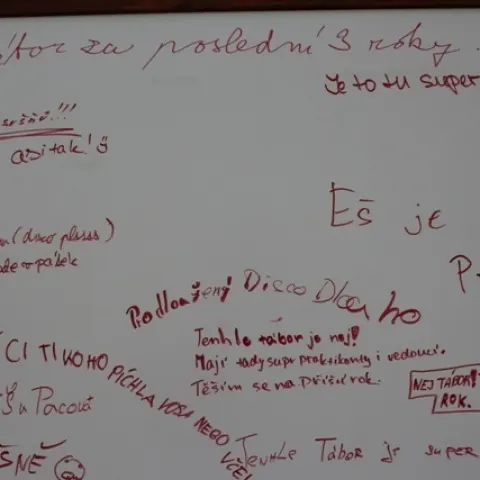 tábor za poslední 3 roky
Je to tu super
!!!
asi tak!
Eš je
(disco plesss)
pátek
P
Prodloužený Disco Dlouho
Tenhle tábor je nej!
Mají tady supr praktikanty i vedoucí.
Těším se na příští rok.
NEJ TÁBOR!
ROK.
CI TI KOHO PÍCHLA VOSA NEBO
VČEL
Pacová
SNĚ
Tenhle Tábor je super